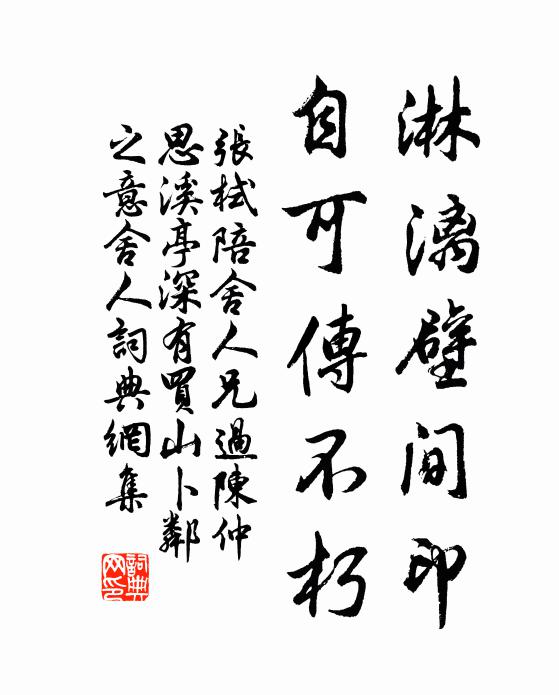 淋漓壁间印
自可傳不朽
張栻陪舍人兄過陳仲
思溪亭深有買山卜鄰
之意舍人詞典網集
詞典网印